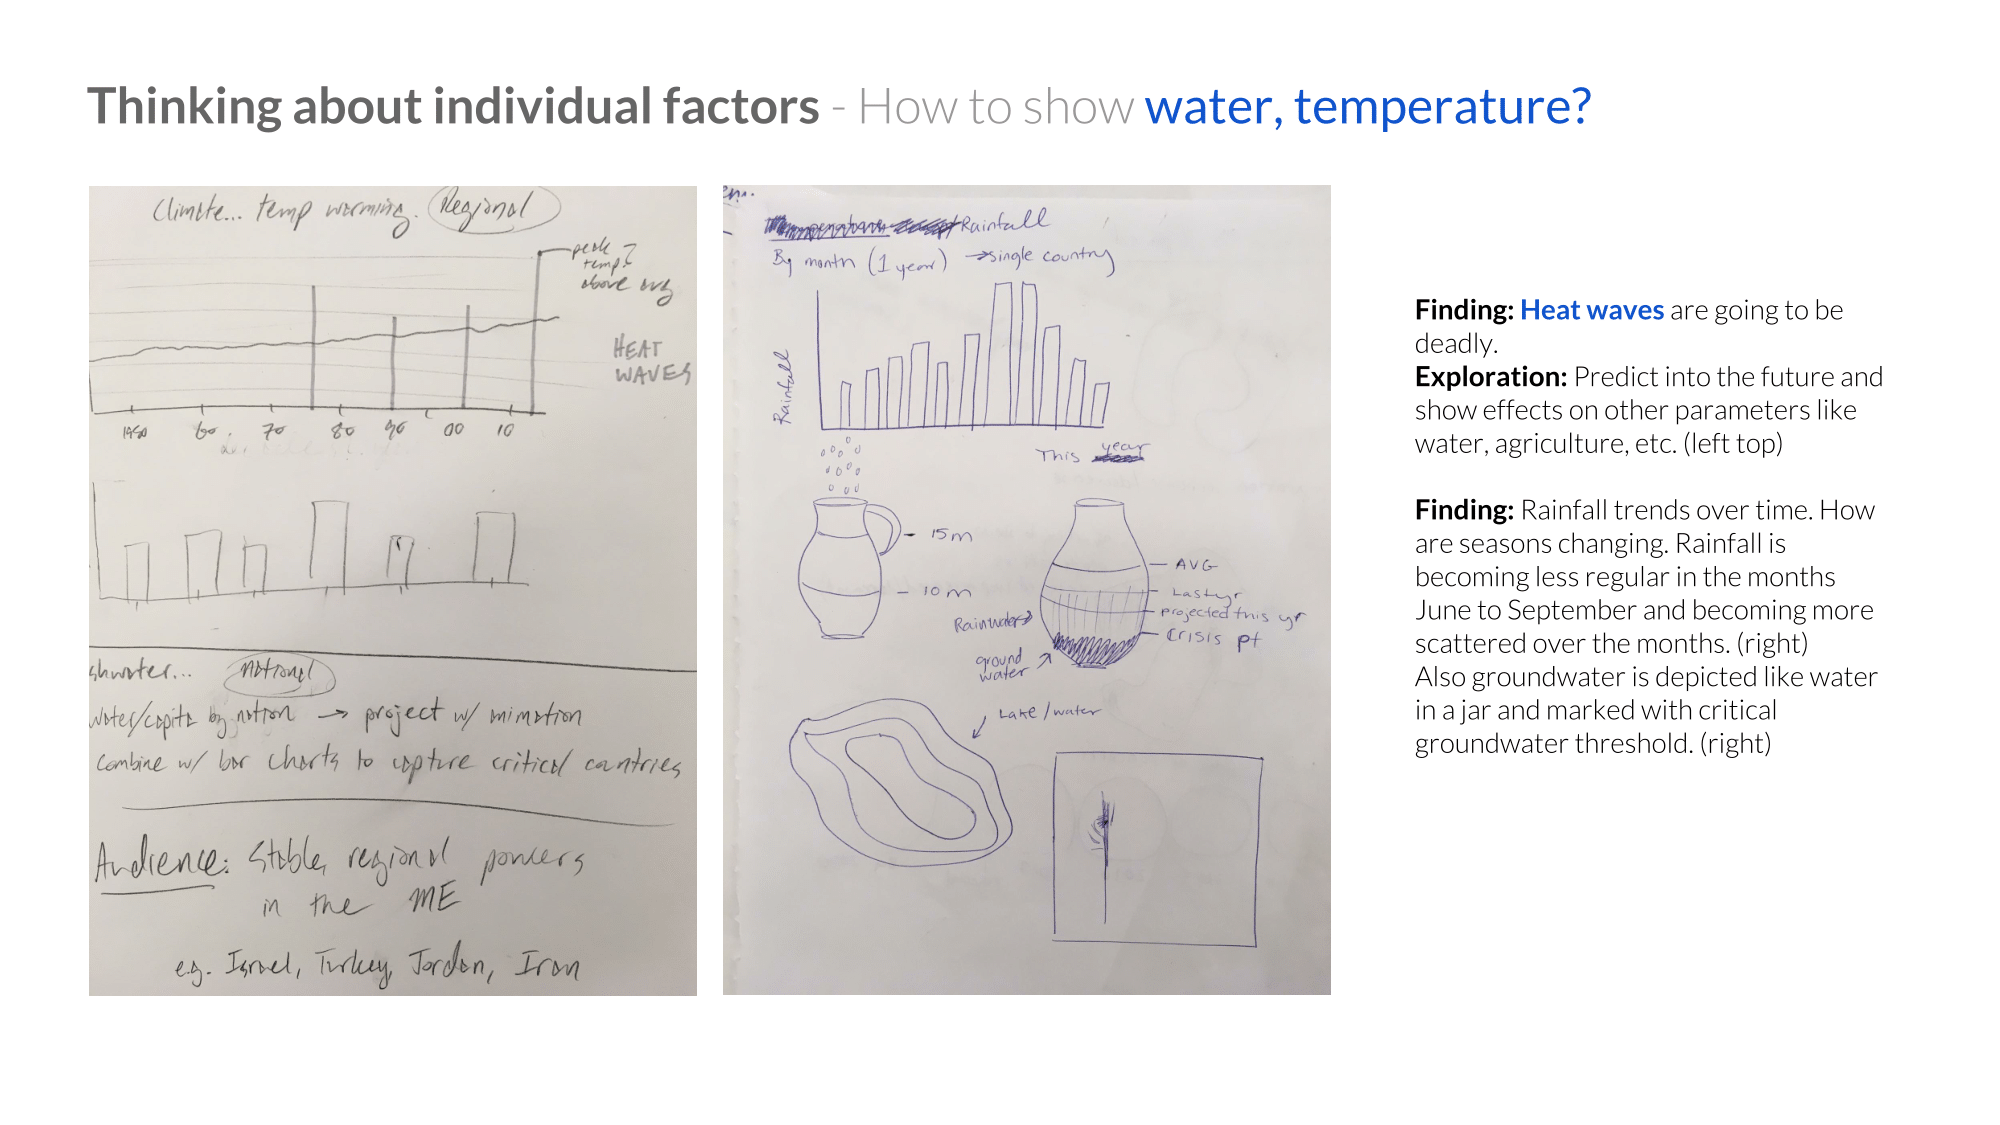 Thinking about individual factors - How to show water, temperature?
Climate... temp warming. Regional
peak
temp.
above avg
HEAT
WAVES
1950 60. 70 80 90 00 10
shwater... national
water/capita by nation → project w/ animation
Combine w/ bar charts to capture critical countries
Audience: Stable, regional powers
in the ME
e.g. Israel, Turkey, Jordan, Iran
Rainfall
By month (1 year) → single country
Rainfall
This year
15m
10m
AVG
Last yr
projected this yr
Crisis pt
Rainwater
ground
water
Lake/water
Finding: Heat waves are going to be
deadly.
Exploration: Predict into the future and
show effects on other parameters like
water, agriculture, etc. (left top)
Finding: Rainfall trends over time. How
are seasons changing. Rainfall is
becoming less regular in the months
June to September and becoming more
scattered over the months. (right)
Also groundwater is depicted like water
in a jar and marked with critical
groundwater threshold. (right)